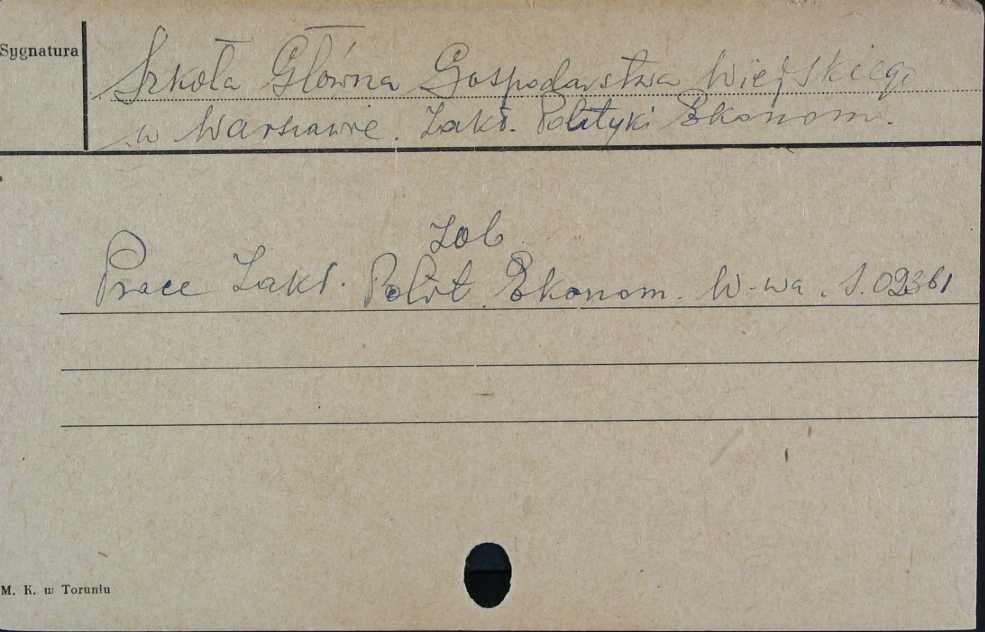 Sygnatura
Szkoła Główna Gospodarstwa Wiejskiego
w Warszawie. Zakł. Polityki Ekonom.
Zob
Prace Zakł. Polit. Ekonom. W-wa. S.02361
M. K. w Toruniu